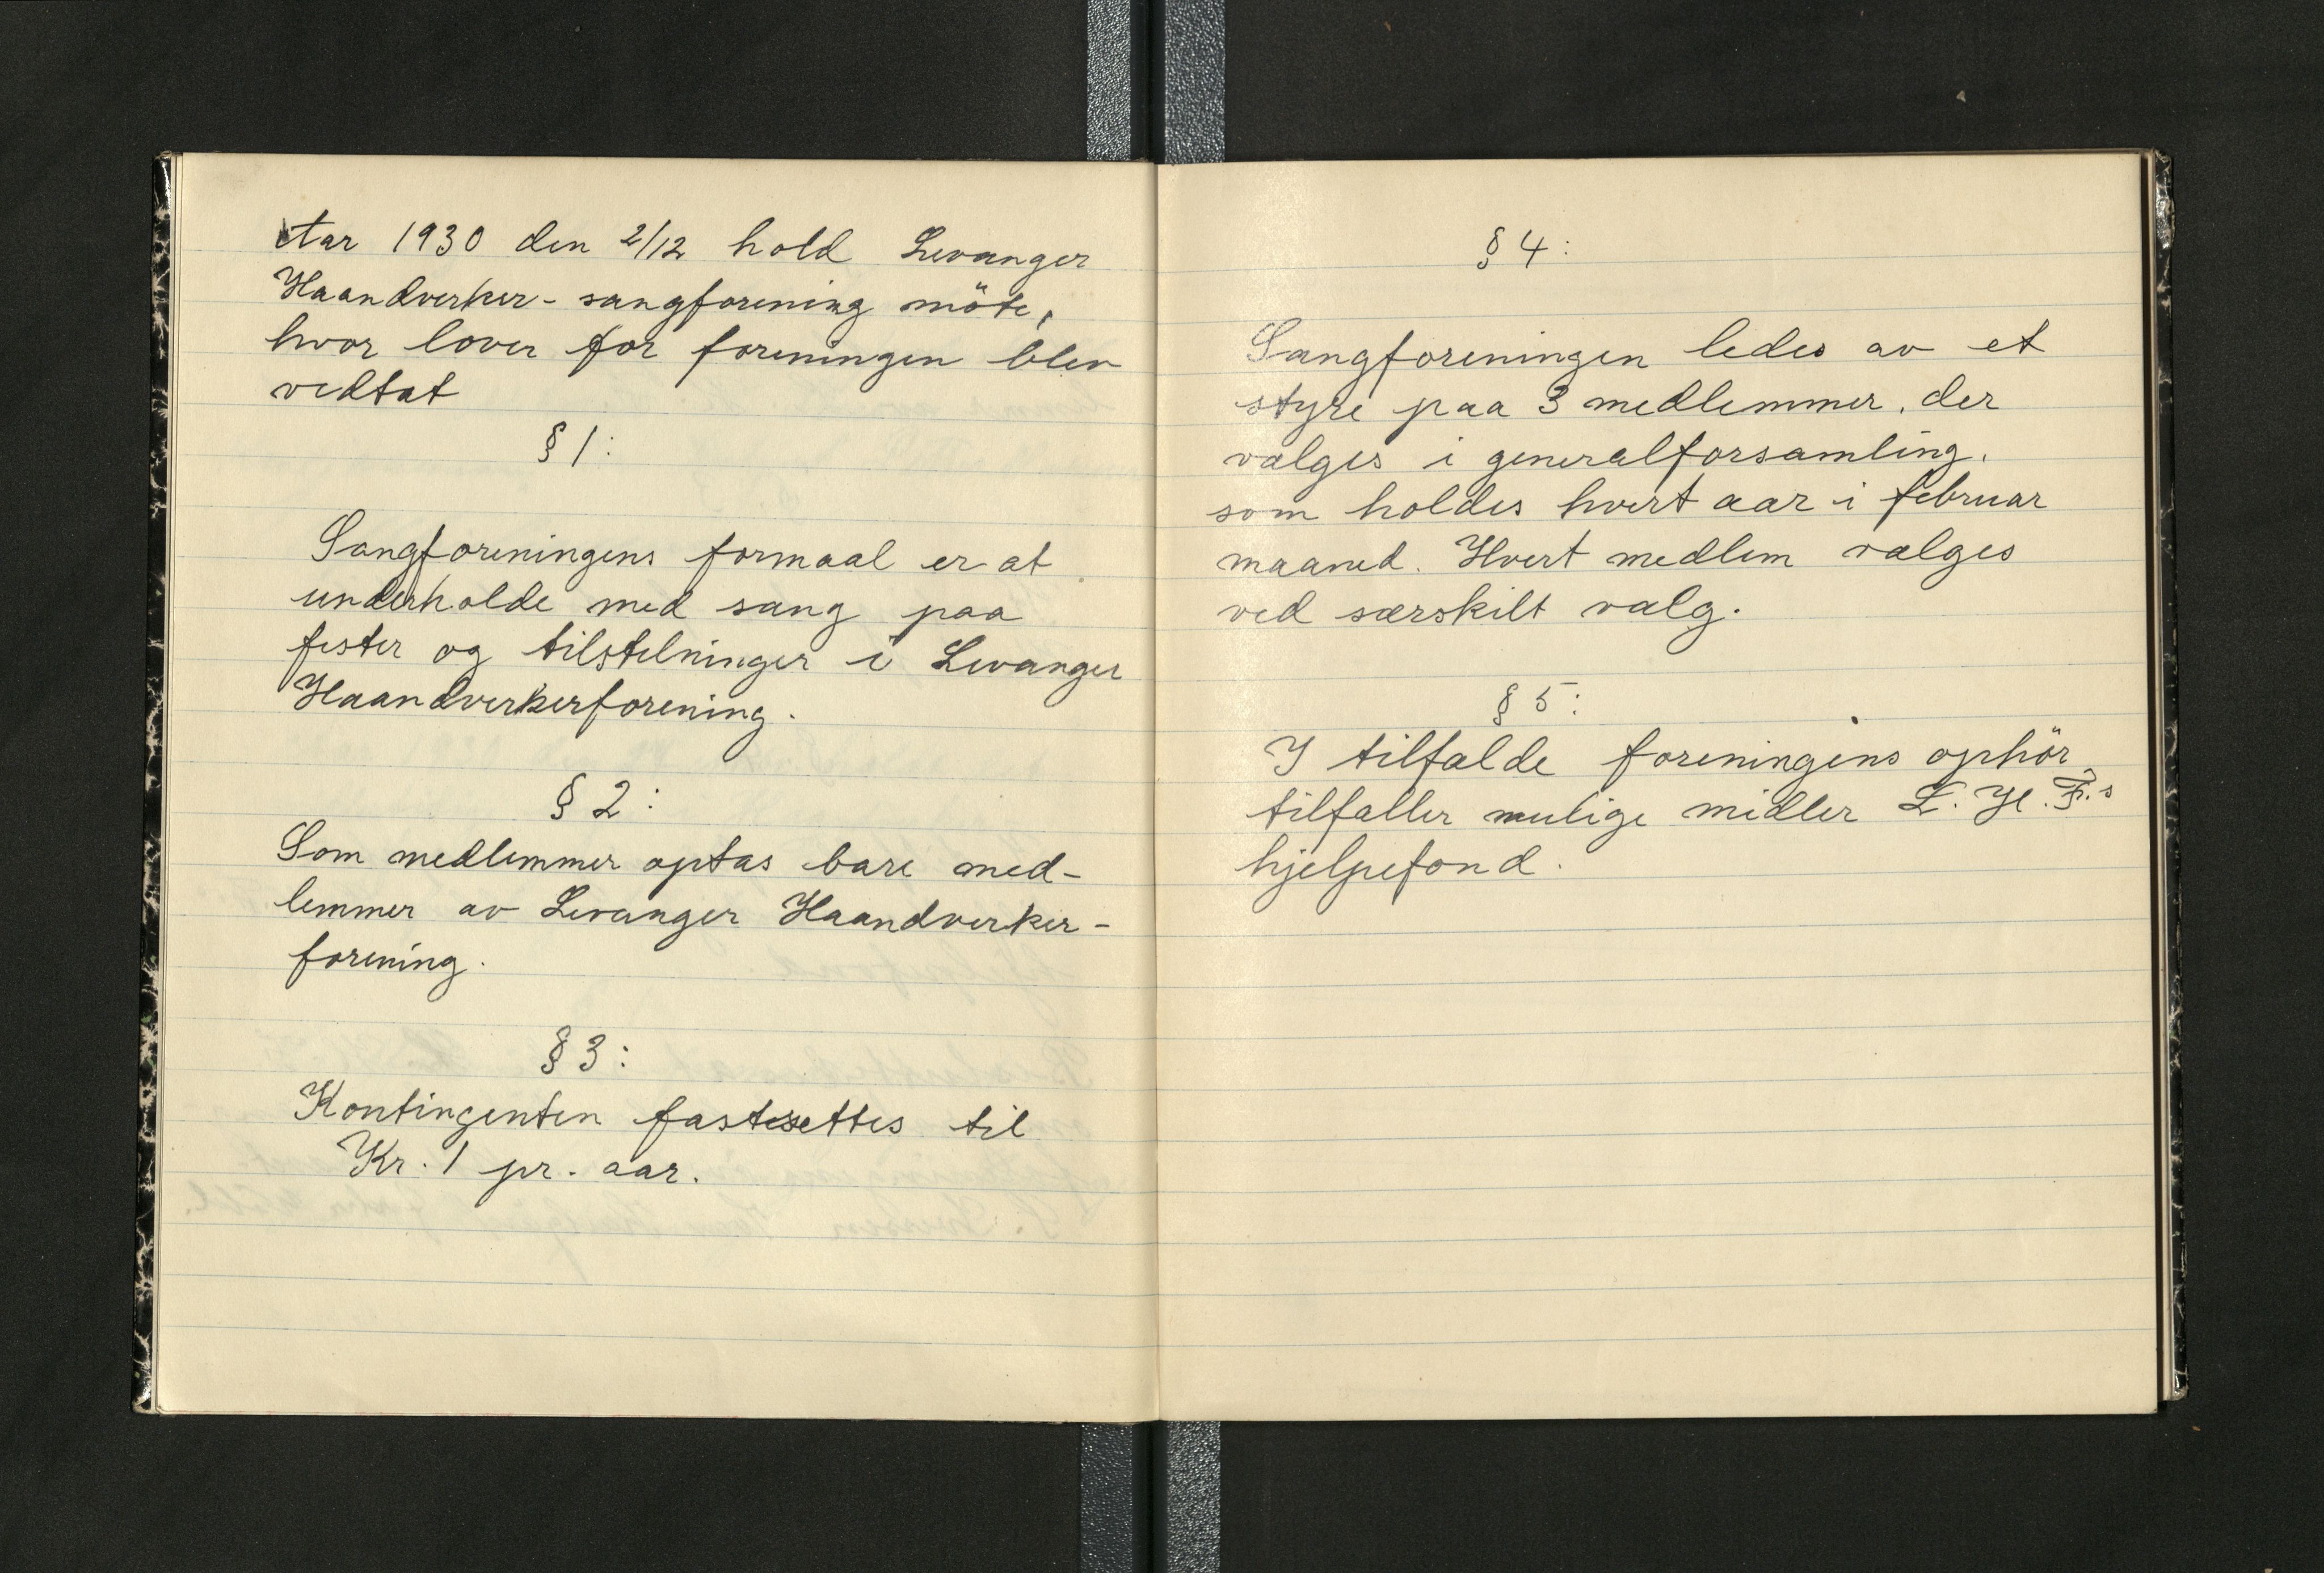 Aar 1930 den 2/12 hold Levanger
Haandverker-sangforening möte,
hvor lover for foreningen blev
vedtat
§ 1:
Sangforeningens formaal er at
underholde med sang paa
fester og tilstelninger i Levanger
Haandverkerforening.
§ 2:
Som medlemmer optas bare med-
lemmer av Levanger Haandverker-
forening.
§ 3:
Kontingenten fastesettes til
Kr. 1 pr. aar.
§ 4:
Sangforeningen ledes av et
styre paa 3 medlemmer, der
valges i generalforsamling,
som holdes hvert aar i februar
maaned. Hvert medlem valges
ved særskilt valg.
§ 5:
I tilfalde foreningens ophör
tilfaller mulige midler L. H. F.s
hjelpefond.